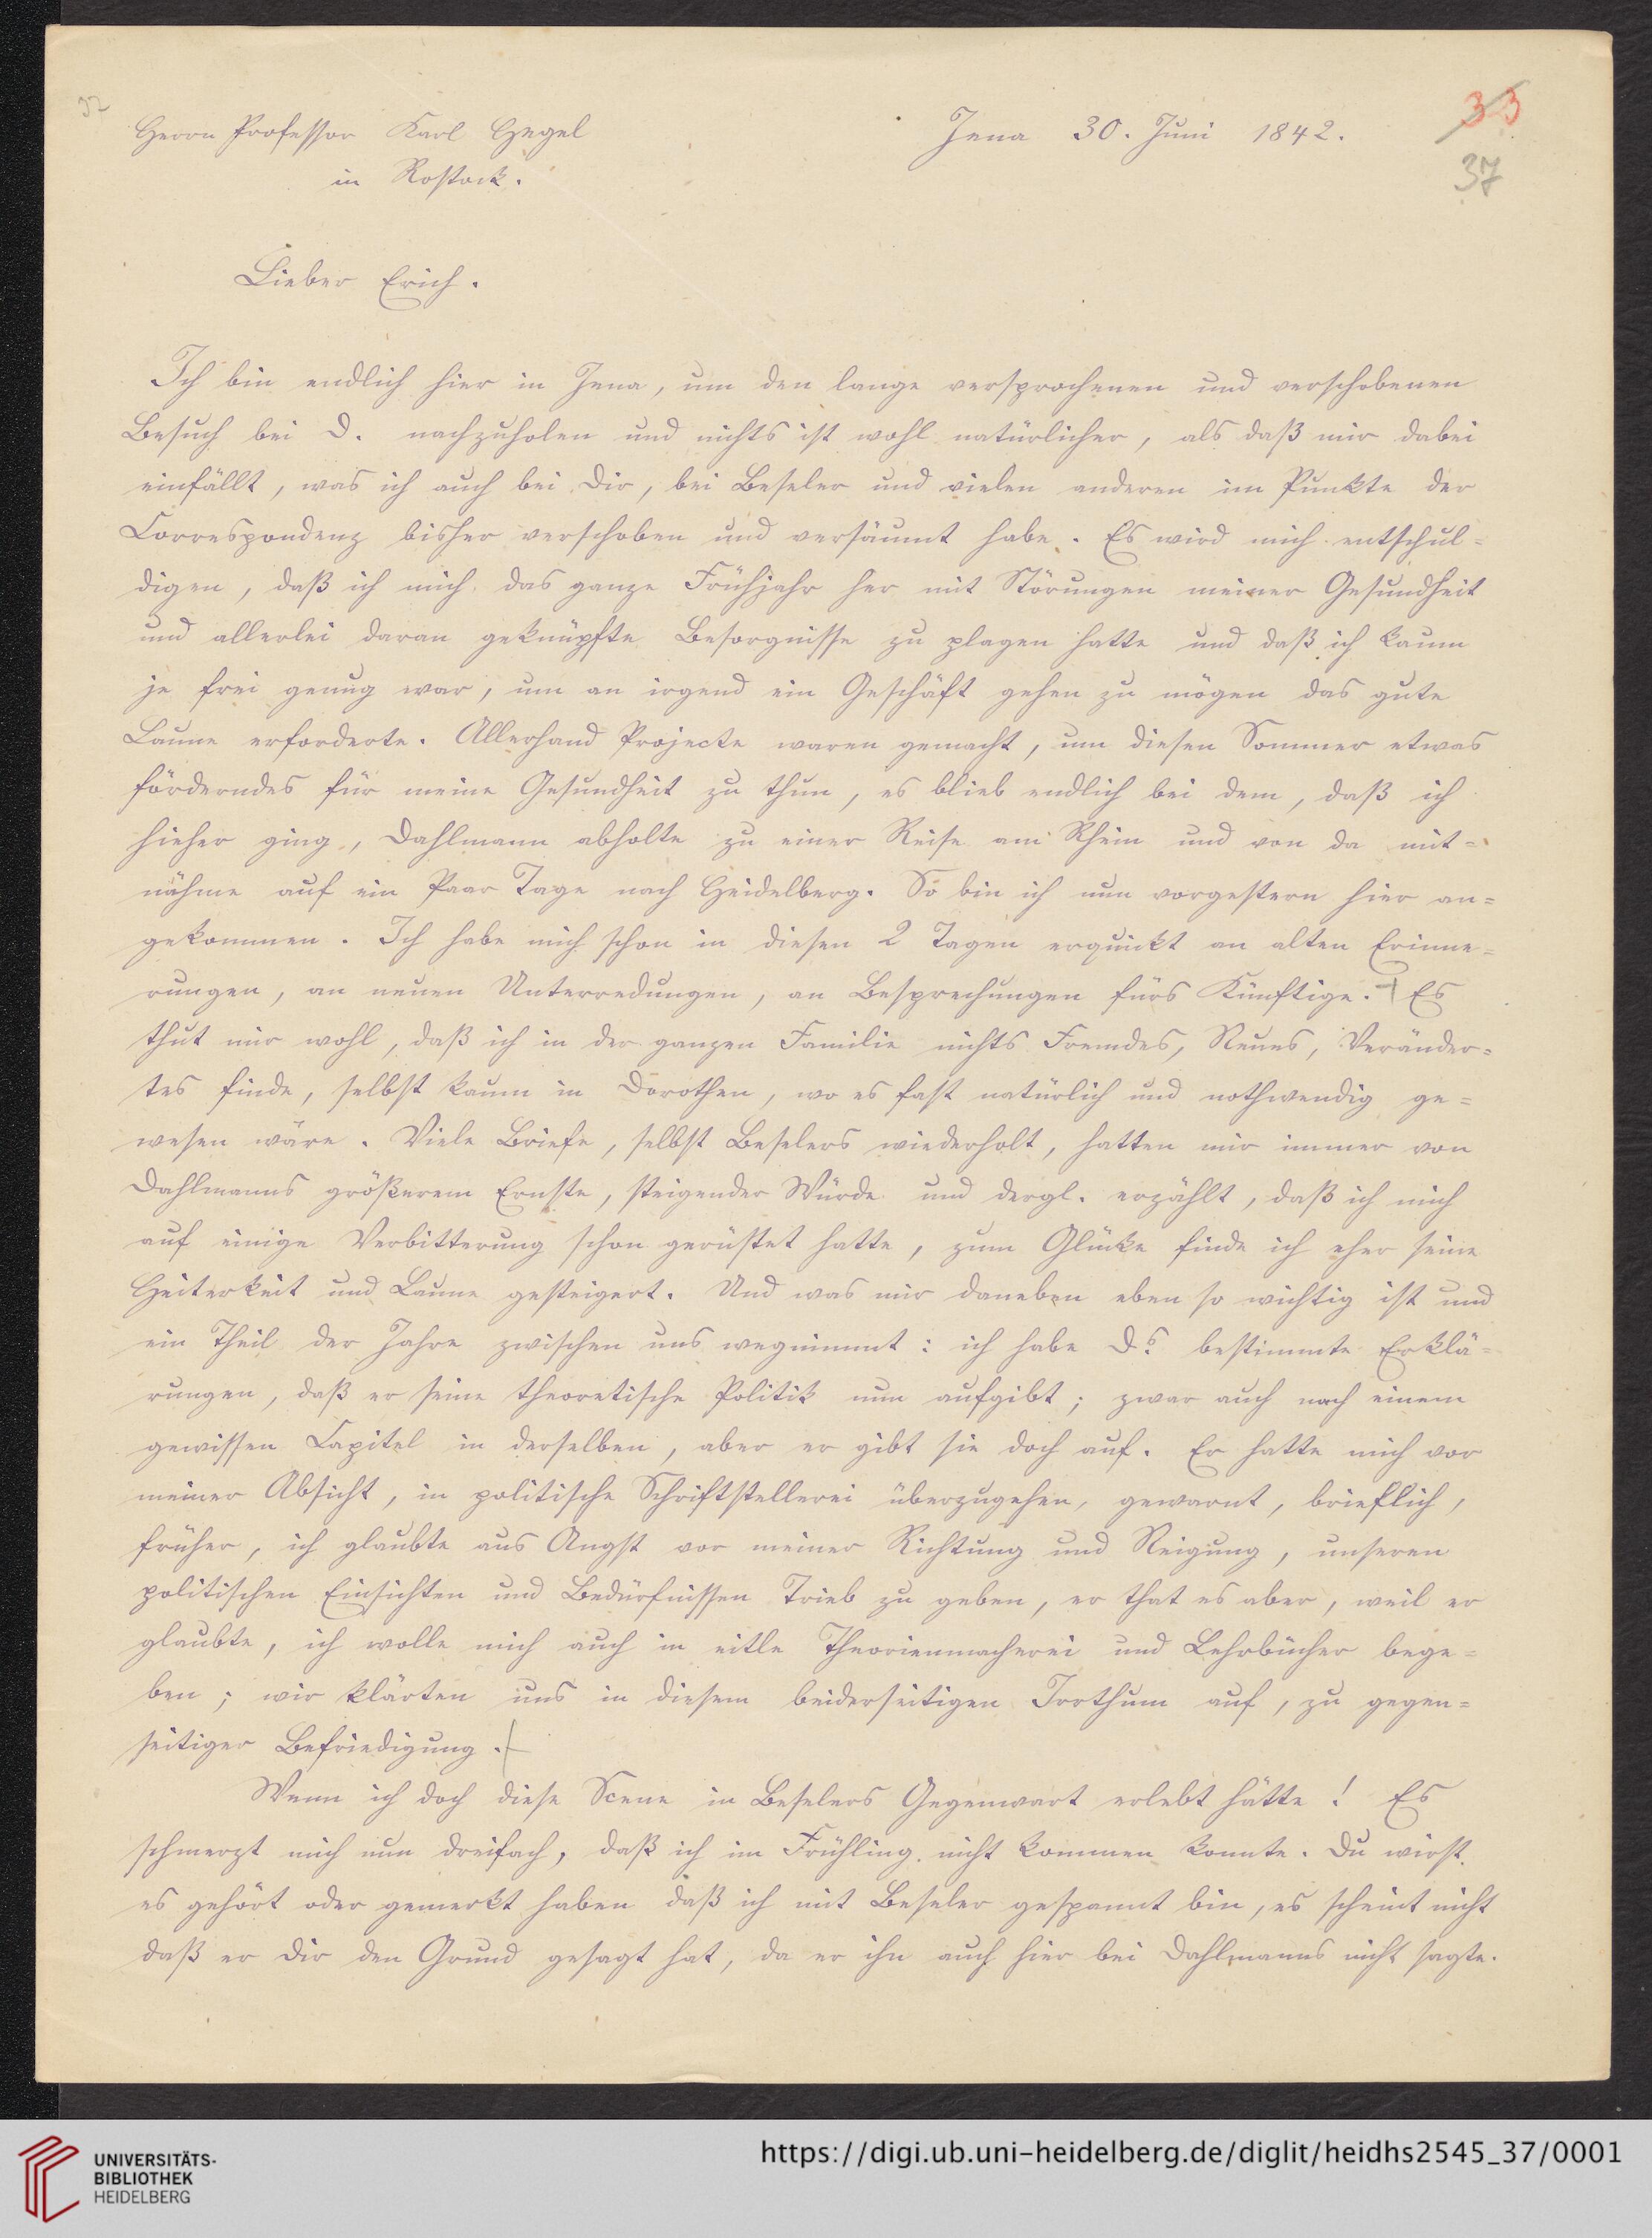 37
Herrn Professor Karl Hegel
in Rostock.
Jena 30. Juni 1842.
33
37
Lieber Erich.
Ich bin endlich hier in Jena, um den lange versprochenen und verschobenen
Besuch bei D. nachzuholen und nichts ist wohl natürlicher, als daß mir dabei
einfällt, was ich auch bei Dir, bei Beseler und vielen anderen im Punkte der
Correspondenz bisher verschoben und versäumt habe. Es wird mich entschul=
digen, daß ich mich das ganze Frühjahr her mit Störungen meiner Gesundheit
und allerlei daran geknüpfte Besorgnisse zu plagen hatte und daß ich kaum
je frei genug war, um an irgend ein Geschäft gehen zu mögen das gute
Laune erforderte. Allerhand Projecte waren gemacht, um diesen Sommer etwas
förderndes für meine Gesundheit zu thun, es blieb endlich bei dem, daß ich
hieher ging, Dahlmann abholte zu einer Reise am Rhein und von da mit=
nähme auf ein Paar Tage nach Heidelberg. So bin ich nun vorgestern hier an=
gekommen. Ich habe mich schon in diesen 2 Tagen erquickt an alten Erinne=
rungen, an neuen Unterredungen, an Besprechungen fürs Künftige. Es
thut mir wohl, daß ich in der ganzen Familie nichts Fremdes, Neues, Veränder=
tes finde, selbst kaum in Dorothen, wo es fast natürlich und nothwendig ge=
wesen wäre. Viele Briefe, selbst Beselers wiederholt, hatten mir immer von
Dahlmanns größerem Ernste, steigender Würde und dergl. erzählt, daß ich mich
auf einige Verbitterung schon gerüstet hatte, zum Glücke finde ich eher seine
Heiterkeit und Laune gesteigert. Und was mir daneben eben so wichtig ist und
ein Theil der Jahre zwischen uns wegnimmt: ich habe Ds. bestimmte Erklä=
rungen, daß er seine theoretische Politik nun aufgibt; zwar auch nach einem
gewissen Capitel in derselben, aber er gibt sie doch auf. Er hatte mich vor
meiner Absicht, in politische Schriftstellerei überzugehen, gewarnt, brieflich,
früher, ich glaubte aus Angst vor meiner Richtung und Neigung, unseren
politischen Einsichten und Bedürfnissen Trieb zu geben, er that es aber, weil er
glaubte, ich wolle mich auch in eitle Theorienmacherei und Lehrbücher bege=
ben; wir klärten uns in diesem beiderseitigen Irrthum auf, zu gegen=
seitiger Befriedigung.
Wenn ich doch diese Scene in Beselers Gegenwart erlebt hätte! Es
schmerzt mich nun dreifach, daß ich im Frühling nicht kommen konnte. Du wirst
es gehört oder gemerkt haben daß ich mit Beseler gespannt bin, es scheint nicht
daß er Dir den Grund gesagt hat, da er ihn auch hier bei Dahlmanns nicht sagte.
UNIVERSITÄTS-
BIBLIOTHEK
HEIDELBERG
https://digi.ub.uni-heidelberg.de/diglit/heidhs2545_37/0001